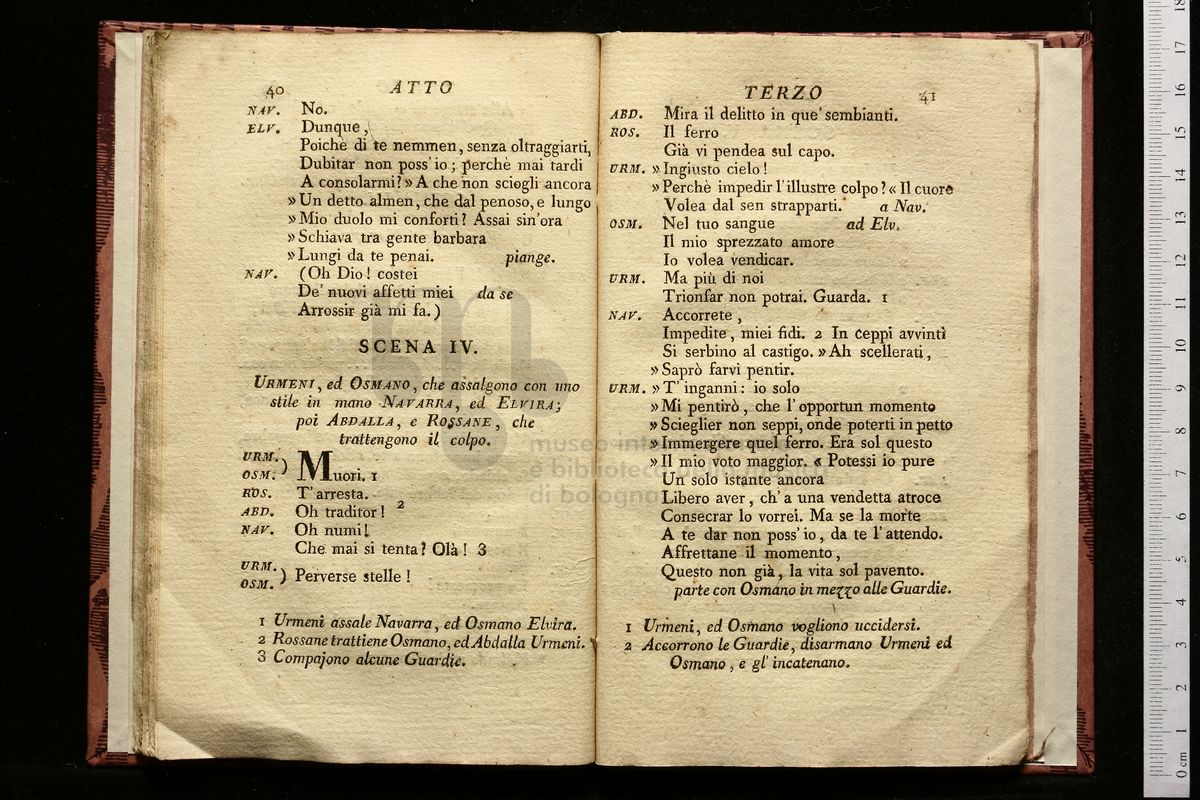 40 ATTO
NAV. No.
ELV. Dunque,
Poichè di te nemmen, senza oltraggiarti,
Dubitar non poss' io; perchè mai tardi
A consolarmi? » A che non sciogli ancora
» Un detto almen, che dal penoso, e lungo
» Mio duolo mi conforti? Assai sin'ora
» Schiava tra gente barbara
» Lungi da te penai. piange.
NAV. (Oh Dio! costei
De' nuovi affetti miei da se
Arrossir già mi fa.)
SCENA IV.
URMENI, ed OSMANO, che assalgono con uno
stile in mano NAVARRA, ed ELVIRA;
poi ABDALLA, e ROSSANE, che
trattengono il colpo.
URM.
OSM. ) Muori. 1
ROS. T' arresta.
ABD. Oh traditor! 2
NAV. Oh numi!
Che mai si tenta? Olà! 3
URM.
OSM. ) Perverse stelle!
1 Urmeni assale Navarra, ed Osmano Elvira.
2 Rossane trattiene Osmano, ed Abdalla Urmeni.
3 Compajono alcune Guardie.
TERZO 41
ABD. Mira il delitto in que' sembianti.
ROS. Il ferro
Già vi pendea sul capo.
URM. » Ingiusto cielo!
» Perchè impedir l'illustre colpo? « Il cuore
Volea dal sen strapparti. a Nav.
OSM. Nel tuo sangue ad Elv.
Il mio sprezzato amore
Io volea vendicar.
URM. Ma più di noi
Trionfar non potrai. Guarda. 1
NAV. Accorrete,
Impedite, miei fidi. 2 In ceppi avvinti
Si serbino al castigo. » Ah scellerati,
» Saprò farvi pentir.
URM. » T' inganni: io solo
» Mi pentirò, che l' opportun momento
» Scieglier non seppi, onde poterti in petto
» Immergere quel ferro. Era sol questo
» Il mio voto maggior. « Potessi io pure
Un solo istante ancora
Libero aver, ch' a una vendetta atroce
Consecrar lo vorrei. Ma se la morte
A te dar non poss' io, da te l' attendo.
Affrettane il momento,
Questo non già, la vita sol pavento.
parte con Osmano in mezzo alle Guardie.
1 Urmeni, ed Osmano vogliono uccidersi.
2 Accorrono le Guardie, disarmano Urmeni ed
Osmano, e gl' incatenano.
museo
e biblioteca
di bologna
0 cm 1 2 3 4 5 6 7 8 9 10 11 12 13 14 15 16 17 18